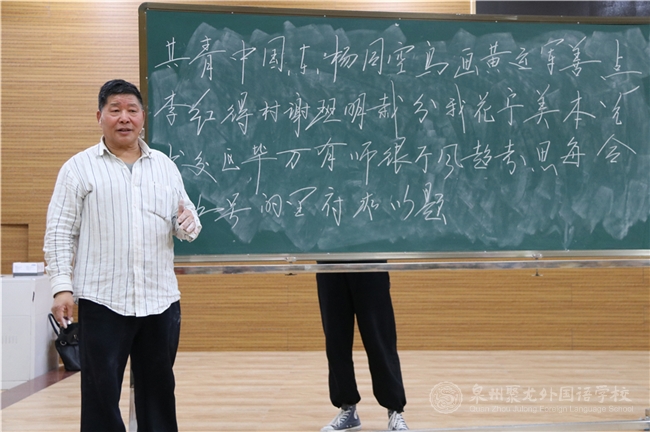 共青中国东杨同空鸟画黄近军善点
李红得村谢理明裁分我花宁美本
交区毕万有师很于风趣易思每会
号的里府求以题
泉州聚龙外国语学校
Quan Zhou Julong Foreign Language School